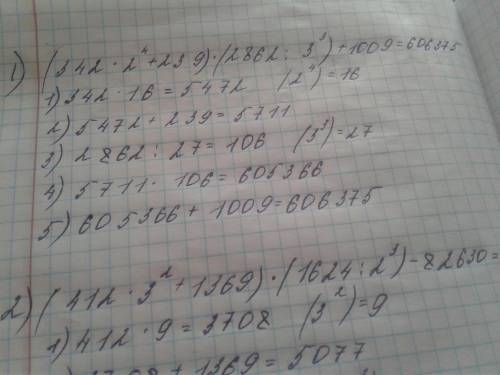 1) (342 · 2⁴ + 239) · (2862 : 3³) + 1009 = 606375
1) 342 · 16 = 5472 (2⁴) = 16
2) 5472 + 239 = 5711
3) 2862 : 27 = 106 (3³) = 27
4) 5711 · 106 = 605366
5) 605366 + 1009 = 606375
2) (412 · 3² + 1369) · (1624 : 2³) - 82630 =
1) 412 · 9 = 3708 (3²) = 9
+ 1369 = 5077